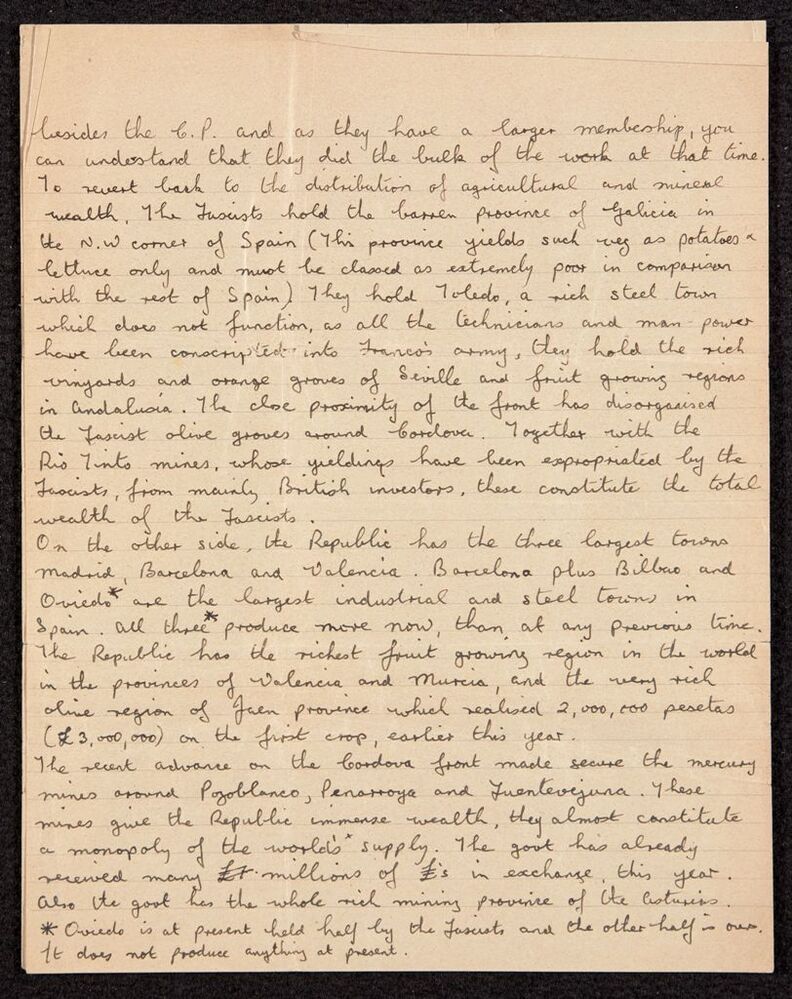 besides the C.P. and as they have a larger membership, you
can understand that they did the bulk of the work at that time.
To revert back to the distribution of agricultural and mineral
wealth, The Fascists hold the barren province of Galicia in
the N.W corner of Spain (This province yields such veg as potatoes &
lettuce only and must be classed as extremely poor in comparison
with the rest of Spain) They hold Toledo, a rich steel town
which does not function, as all the technicians and man power
have been conscripted into Franco's army, they hold the rich
vinyards and orange groves of Seville and fruit growing regions
in Andalusia. The close proximity of the front has disorganised
the Fascist olive groves around Cordova. Together with the
Rio Tinto mines, whose yieldings have been expropriated by the
Fascists, from mainly British investors, these constitute the total
wealth of the Fascists.
On the other side, the Republic has the three largest towns
Madrid, Barcelona and Valencia. Barcelona plus Bilbao and
Oviedo* are the largest industrial and steel towns in
Spain. All three* produce more now, than at any previous time.
The Republic has the richest fruit growing region in the world
in the provinces of Valencia and Murcia, and the very rich
olive region of Jaen province which realised 2,000,000 pesetas
(£3,000,000) on the first crop, earlier this year.
The recent advance on the Cordova front made secure the mercury
mines around Pozoblanco, Penarroya and Fuentevejuna. These
mines give the Republic immense wealth, they almost constitute
a monopoly of the world's supply. The govt has already
received many millions of £'s in exchange, this year.
Also the govt has the whole rich mining province of the Asturias.
* Oviedo is at present held half by the Fascists and the other half is ours.
It does not produce anything at present.